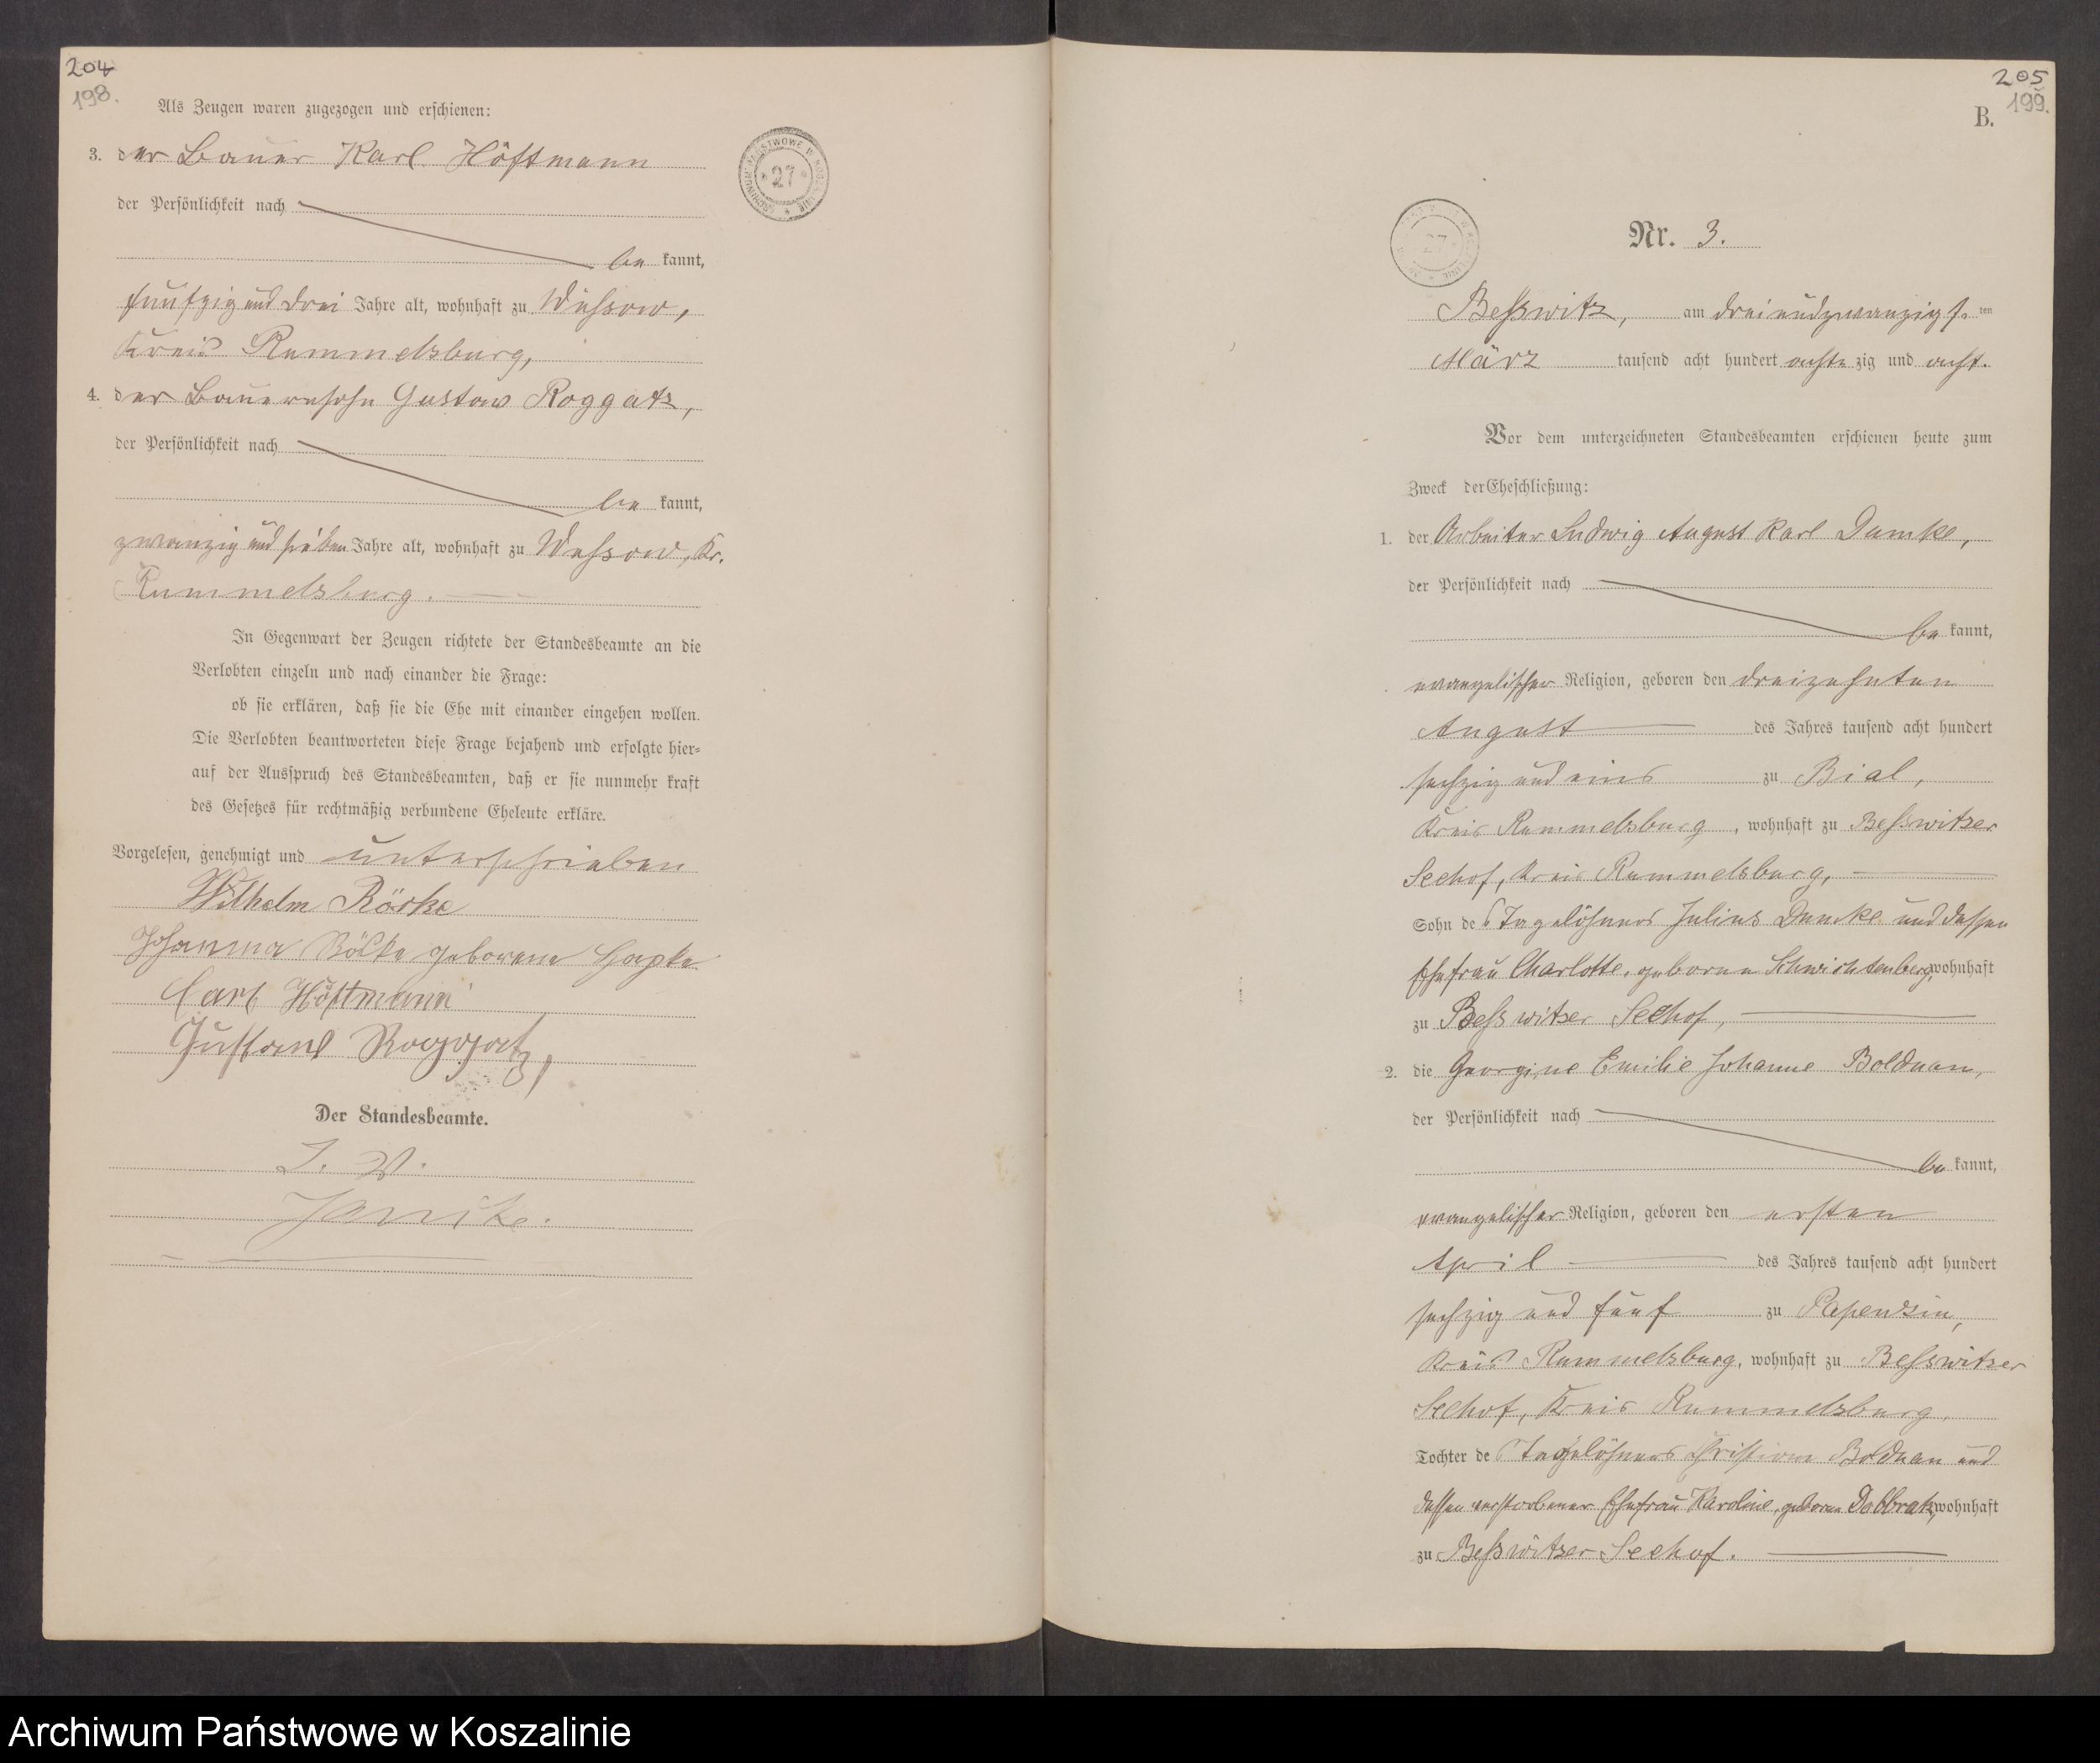 204
198.
Als Zeugen waren zugezogen und erschienen:
3. der Bauer Karl Höftmann
der Persönlichkeit nach
be kannt,
fünfzig und drei Jahre alt, wohnhaft zu Wussow,
Kreis Rummelsburg,
4. der Bauernsohn Gustav Roggatz,
der Persönlichkeit nach
be kannt,
zwanzig und sieben Jahre alt, wohnhaft zu Wussow, Kr.
Rummelsburg.
In Gegenwart der Zeugen richtete der Standesbeamte an die
Verlobten einzeln und nach einander die Frage:
ob sie erklären, daß sie die Ehe mit einander eingehen wollen.
Die Verlobten beantworteten diese Frage bejahend und erfolgte hier-
auf der Ausspruch des Standesbeamten, daß er sie nunmehr kraft
des Gesetzes für rechtmäßig verbundene Eheleute erkläre.
Vorgelesen, genehmigt und unterschrieben
Wilhelm
Johanna geborene Hapke
Carl Höftmann
Gustav Roggatz,
Der Standesbeamte.
I. V.
ARCHIWUM PAŃSTWOWE W KOSZALINIE
* 27 *
205
199.
B.
27
Nr. 3.
Besswitz, am dreiundzwanzigs. ten
März tausend acht hundert achtzig und acht.
Vor dem unterzeichneten Standesbeamten erschienen heute zum
Zweck der Eheschließung:
1. der Arbeiter Ludwig August Karl Damke,
der Persönlichkeit nach
be kannt,
evangelischer Religion, geboren den dreizehnten
August des Jahres tausend acht hundert
sechzig und eins zu Bial,
Kreis Rummelsburg, wohnhaft zu Besswitzer
Seehof, Kreis Rummelsburg,
Sohn des Tagelöhners Julius Damke und dessen
Ehefrau Charlotte, geborne Schwichtenberg, wohnhaft
zu Besswitzer Seehof,
2. die Georgine Emilie Johanne Bolduan,
der Persönlichkeit nach
be kannt,
evangelischer Religion, geboren den ersten
April des Jahres tausend acht hundert
sechzig und fünf zu Papenzin,
Kreis Rummelsburg, wohnhaft zu Besswitzer
Seehof, Kreis Rummelsburg.
Tochter des Tagelöhners Christian Bolduan und
dessen verstorbener Ehefrau Karoline, geborne Dobbratz, wohnhaft
zu Besswitzer Seehof.
Archiwum Państwowe w Koszalinie